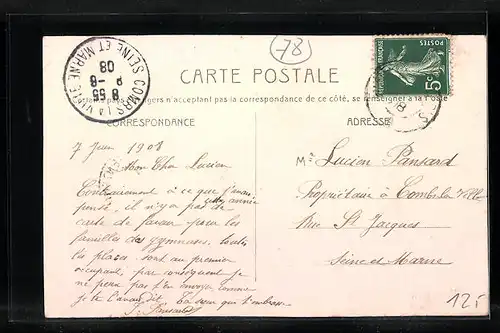 78
COMBS LA VILLE
SEINE ET MARNE
8 55
9 - 6
08
RÉPUBLIQUE FRANÇAISE
POSTES
5c
CARTE POSTALE
pays étrangers n'acceptant pas la correspondance de ce côté, se renseigner à la Poste
CORRESPONDANCE
ADRESSE
7 Juin 1908
Mon Cher Lucien
Contrairement à ce que j'avais
pensé, il n'y a pas cette année de
carte de faveur pour les
familles des gymnastes. toutes
les places sont au premier
occupant, par conséquent je
ne peux pas t'en envoyer comme
je te l'avais dit. Ta sœur qui t'embrasse
Pansard
Mr Lucien Pansard
Propriétaire à Combs la Ville
Rue St Jacques
Seine et Marne
12.-